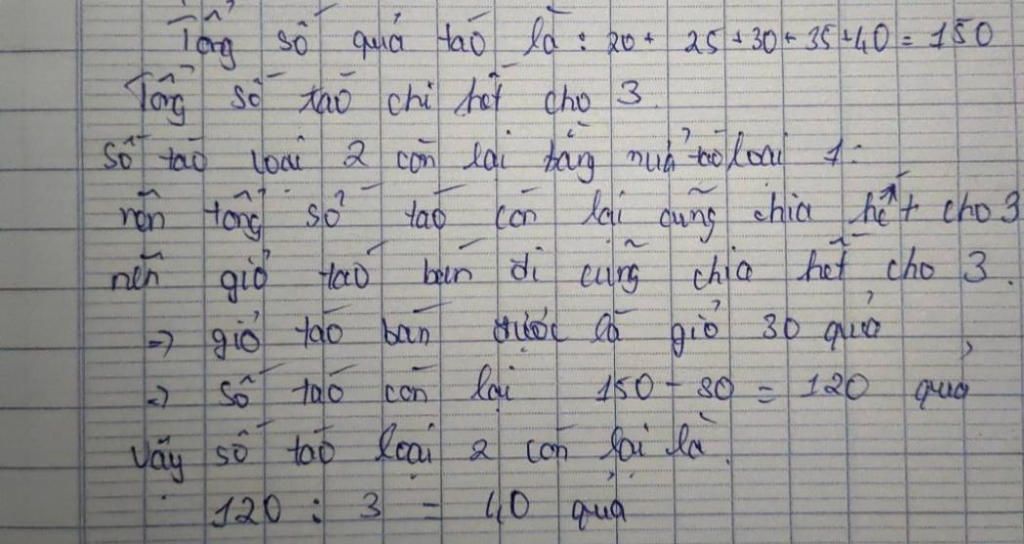 Tổng số quả táo là : 20 + 25 + 30 + 35 + 40 = 150
Tổng số táo chi hết cho 3.
Số táo loại 2 còn lại bằng nửa táo loại 1.
nên tổng số táo còn lại cũng chia hết cho 3
nên giỏ táo bán đi cũng chia hết cho 3.
=> giỏ táo bán được là giỏ 30 quả
=> số táo còn lại 150 - 30 = 120 quả
Vậy số táo loại 2 còn lại là.
120 : 3 = 40 quả